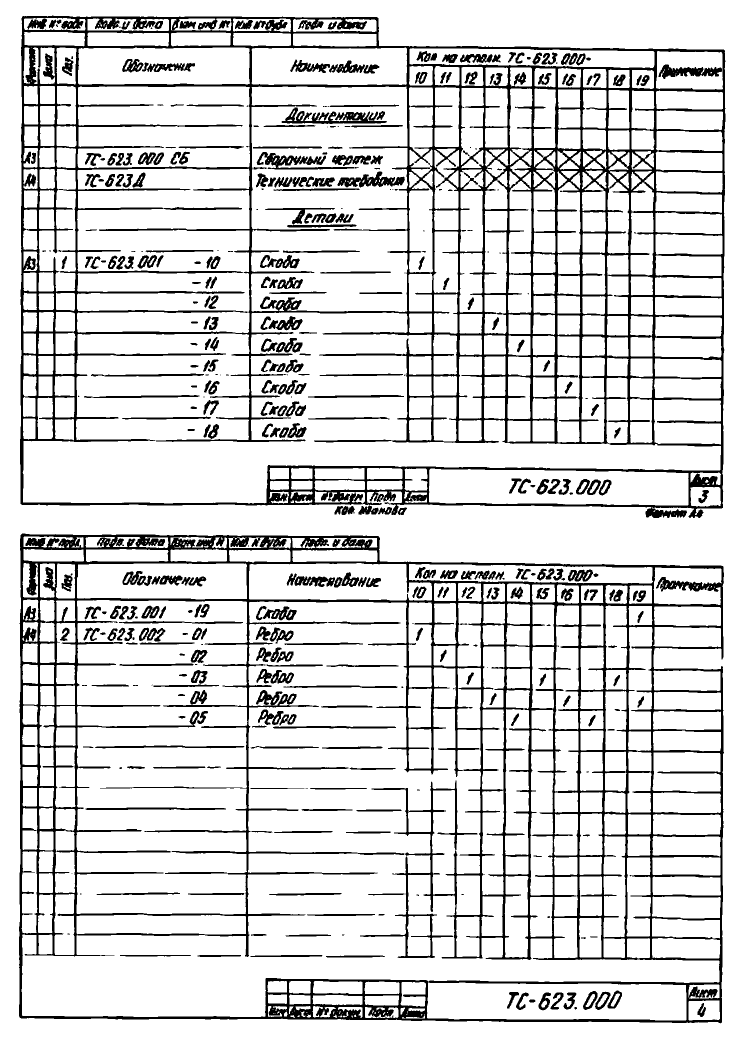 Инв № подл Подп. и дата Взам инв № Инв № дубл Подп и дата
Формат Зона Поз. Обозначение Наименование Кол на исполн. ТС-623.000- Примечание
10 11 12 13 14 15 16 17 18 19
Документация
А3 ТС-623.000 СБ Сборочный чертеж
А4 ТС-623Д Технические требования
Детали
А3 1 ТС-623.001 -10 Скоба 1
-11 Скоба 1
-12 Скоба 1
-13 Скоба 1
-14 Скоба 1
-15 Скоба 1
-16 Скоба 1
-17 Скоба 1
-18 Скоба 1
ТС-623.000 Лист
Изм Лист № докум Подп Дата 3
Коп. Иванова Формат А4
Инв № подл. Подп. и дата Взам инв № Инв № дубл Подп. и дата
Формат Зона Поз. Обозначение Наименование Кол на исполн. ТС-623.000- Примечание
10 11 12 13 14 15 16 17 18 19
А3 1 ТС-623.001 -19 Скоба 1
А4 2 ТС-623.002 -01 Ребро 1
-02 Ребро 1
-03 Ребро 1 1 1
-04 Ребро 1 1 1
-05 Ребро 1 1
ТС-623.000 Лист
Изм Лист № докум Подп. Дата 4